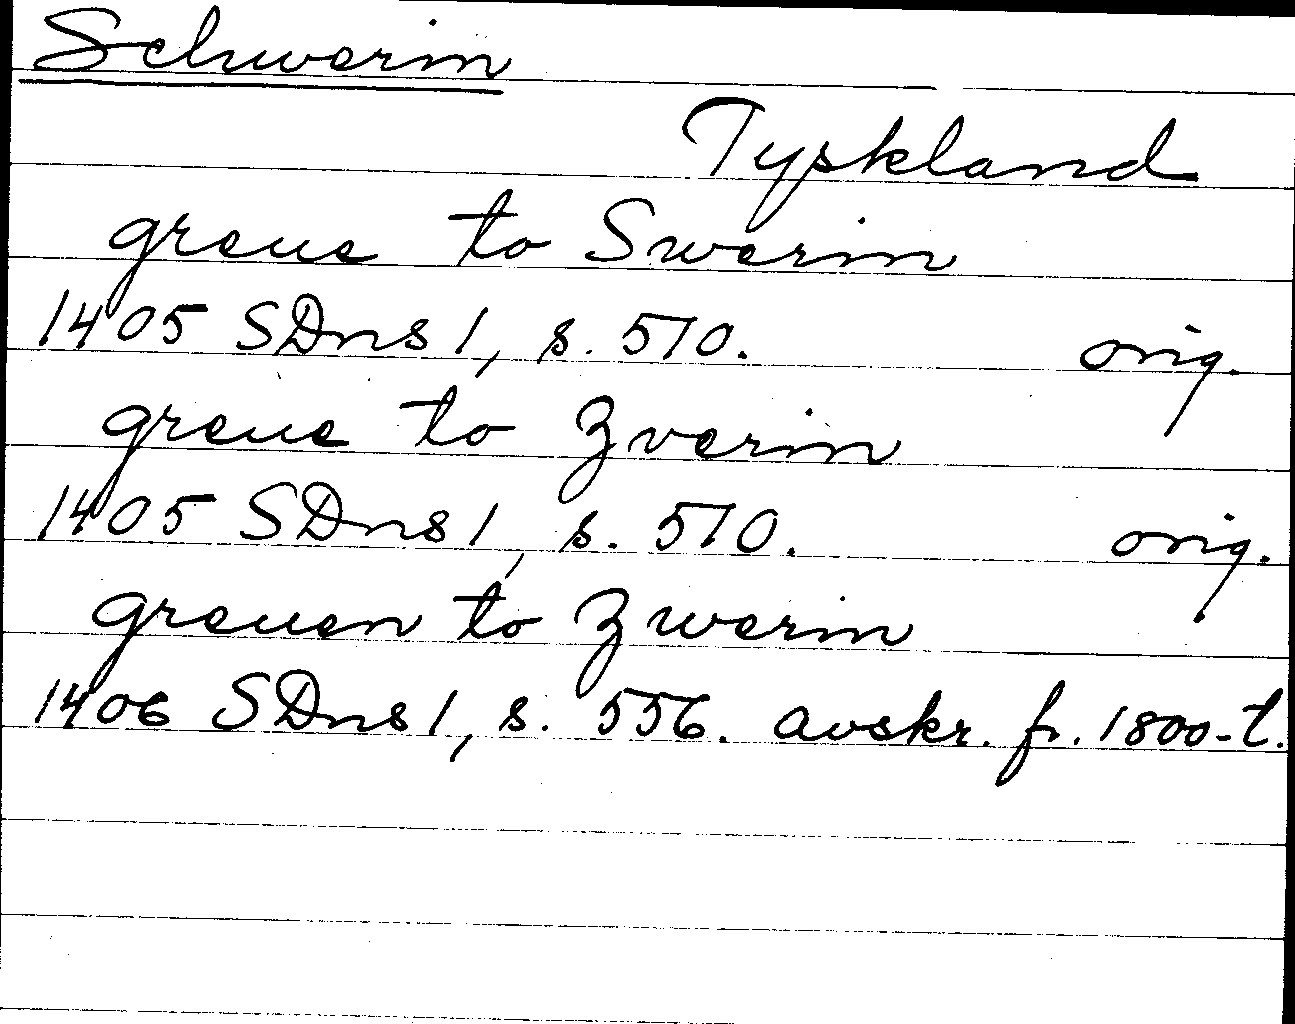 Schwerin
Tyskland
greue to Swerin
1405 SDns 1, s. 510. orig.
greue to Zverin
1405 SDns 1, s. 510. orig.
greuen to Zwerin
1406 SDns 1, s. 556. avskr. fr. 1800-t.